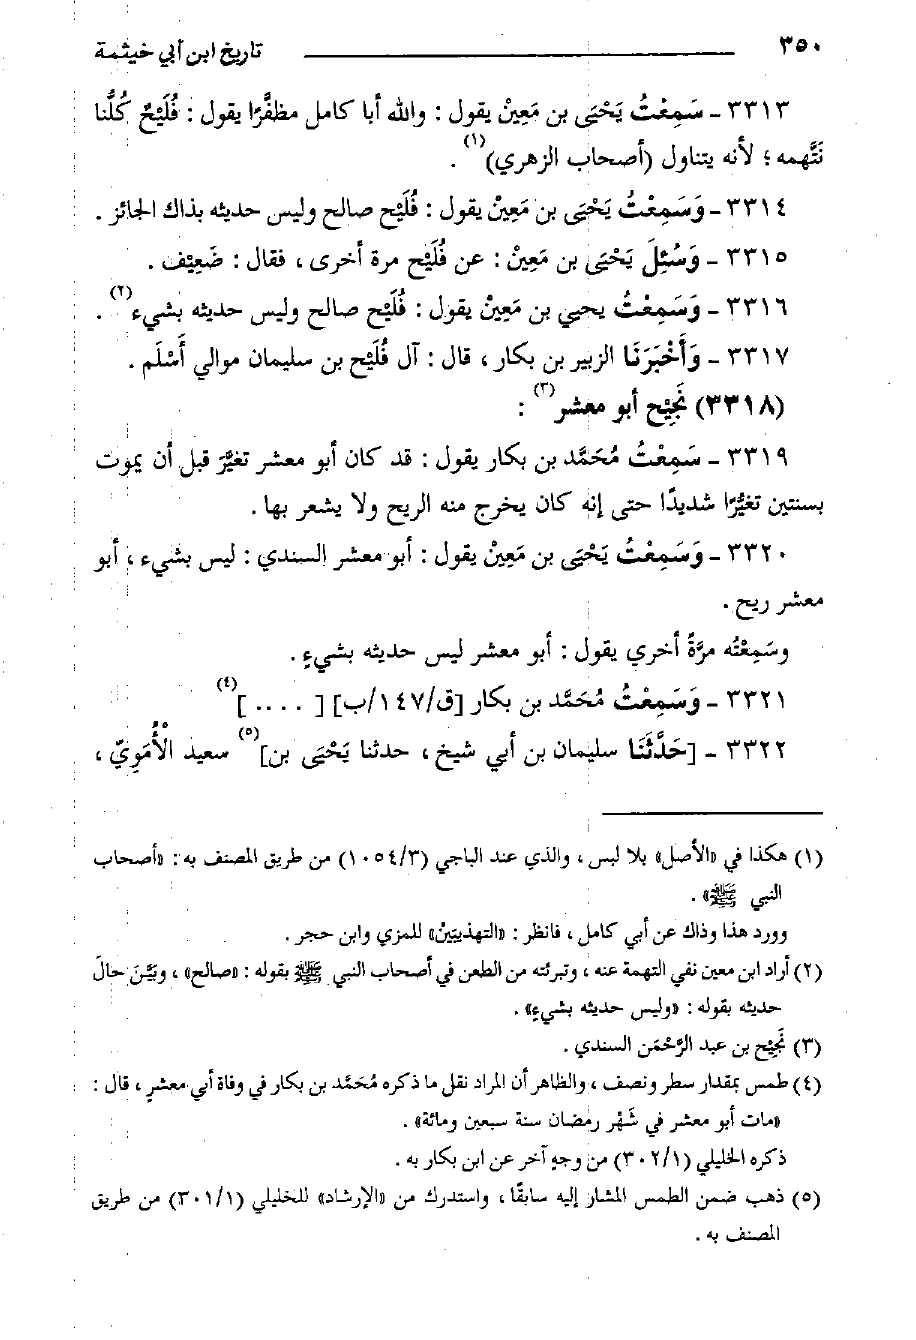 ٣٥٠ تاريخ ابن أبي خيثمة
٣٣١٣ ـ سَمِعْتُ يَحْيَى بن مَعِينْ يقول : والله أبا كامل مظفَّرًا يقول : فُلَيْحٌ كُلُّنا
نَتَّهمه ؛ لأنه يتناول (أصحاب الزهري)(١) .
٣٣١٤ ـ وَسَمِعْتُ يَحْيَى بن مَعِينْ يقول : فُلَيْح صالح وليس حديثه بذاك الجائز .
٣٣١٥ ـ وَسُئِلَ يَحْيَى بن مَعِينْ : عن فُلَيْح مرة أخرى ، فقال : ضَعِيْف .
٣٣١٦ ـ وَسَمِعْتُ يحيي بن مَعِينْ يقول : فُلَيْح صالح وليس حديثه بشيء(٢) .
٣٣١٧ ـ وَأَخْبَرَنَا الزبير بن بكار ، قال : آل فُلَيْح بن سليمان موالي أَسْلَم .
(٣٣١٨) نَجِيْح أبو معشر(٣) :
٣٣١٩ ـ سَمِعْتُ مُحَمَّد بن بكار يقول : قد كان أبو معشر تغيَّر قبل أن يموت
بسنتين تغيُّرًا شديدًا حتى إنه كان يخرج منه الريح ولا يشعر بها .
٣٣٢٠ ـ وَسَمِعْتُ يَحْيَى بن مَعِينْ يقول : أبو معشر السندي : ليس بشيء ، أبو
معشر ريح .
وسَمِعْتُه مرَّةً أخري يقول : أبو معشر ليس حديثه بشيءٍ .
٣٣٢١ ـ وَسَمِعْتُ مُحَمَّد بن بكار [ق/١٤٧/ب] [ .... ](٤)
٣٣٢٢ ـ [حَدَّثَنَا سليمان بن أبي شيخ ، حدثنا يَحْيَى بن](٥) سعيد الْأُمَوِيّ ،
(١) هكذا في «الأصل» بلا لبس ، والذي عند الباجي (١٠٥٤/٣) من طريق المصنف به : «أصحاب
النبي ﷺ» .
وورد هذا وذاك عن أبي كامل ، فانظر : «التهذيبَيْن» للمزي وابن حجر .
(٢) أراد ابن معين نفي التهمة عنه ، وتبرئته من الطعن في أصحاب النبي ﷺ بقوله : «صالح» ، وبَيَّن حالَ
حديثه بقوله : «وليس حديثه بشيءٍ» .
(٣) نَجِيْح بن عبد الرَّحْمَن السندي .
(٤) طمس بمقدار سطر ونصف ، والظاهر أن المراد نقل ما ذكره مُحَمَّد بن بكار في وفاة أبي معشرٍ ، قال :
«مات أبو معشر في شَهْر رمضان سنة سبعين ومائة» .
ذكره الخليلي (٣٠٢/١) من وجهٍ آخر عن ابن بكار به .
(٥) ذهب ضمن الطمس المشار إليه سابقًا ، واستدرك من «الإرشاد» للخليلي (٣٠١/١) من طريق
المصنف به .